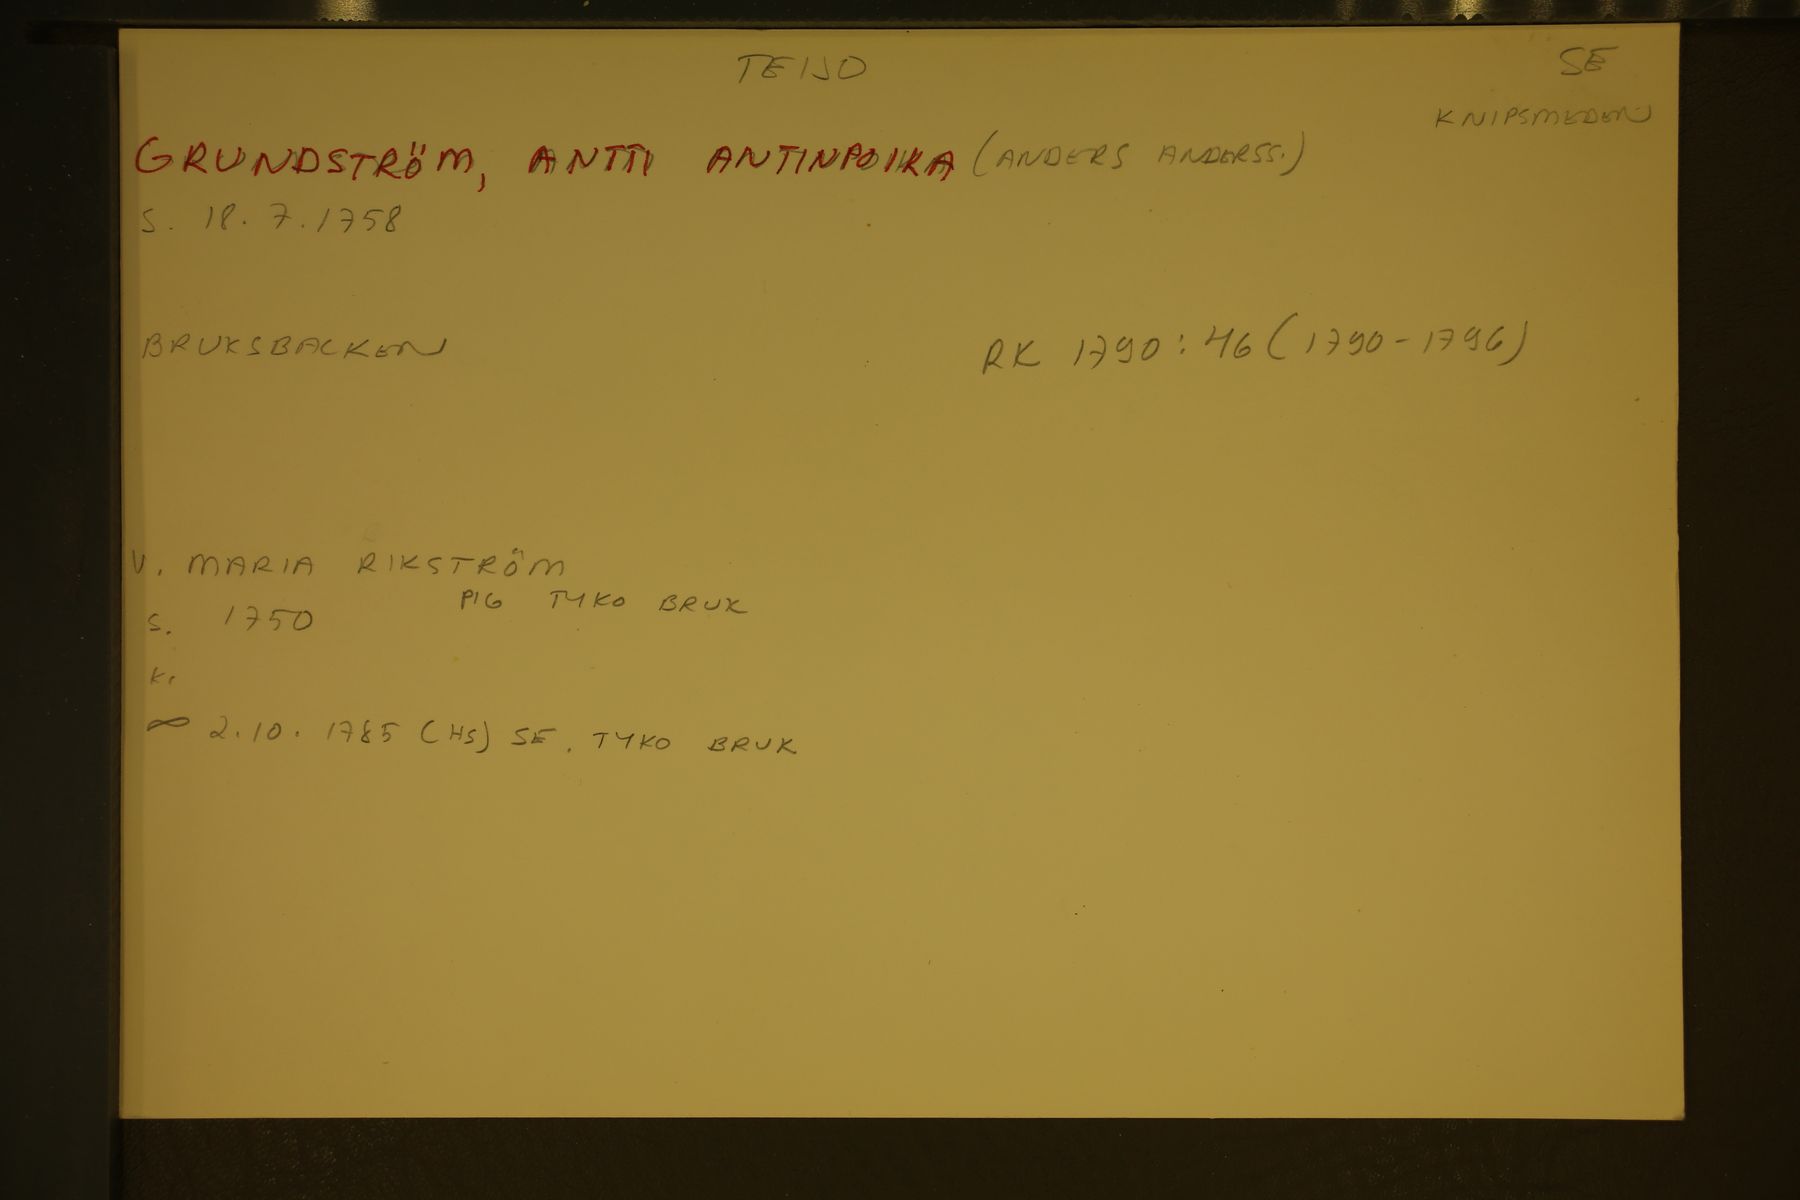 TEIJO
SE
KNIPSMEDEN
GRUNDSTRÖM, ANTTI ANTINPOIKA (ANDERS ANDERSS.)
S. 18.7.1758
BRUKSBACKEN RK 1790:46 (1790-1796)
V. MARIA RIKSTRÖM
PIG TYKO BRUK
S. 1750
K.
∞ 2.10.1785 (HS) SE. TYKO BRUK